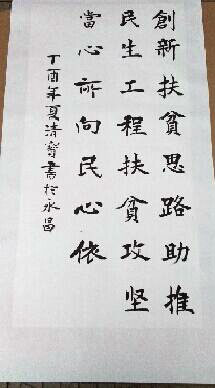 創新扶貧思路助推
民生工程扶貧攻坚
當心所向民心依
丁酉年夏清寳書於永昌